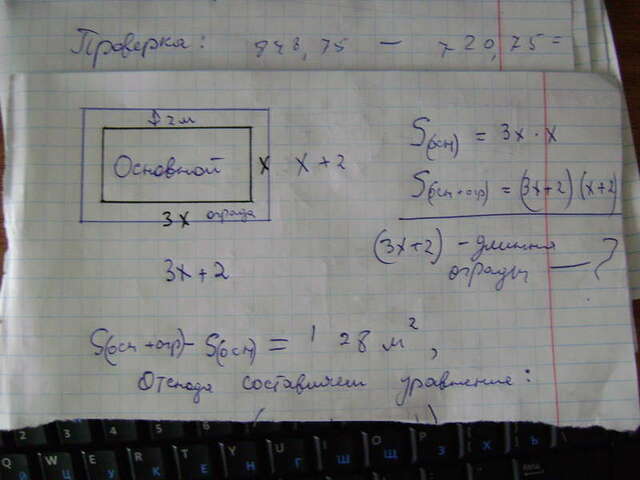 Проверка: 848,75 - 720,75=
2м
Основной
x
x+2
3x
ограда
3x+2
S(осн) = 3x·x
S(осн+огр) = (3x+2)(x+2)
(3x+2) - длинна
ограды - ?
S(осн+огр)-S(осн) = 128 м²,
Отсюда составляем уравнение: